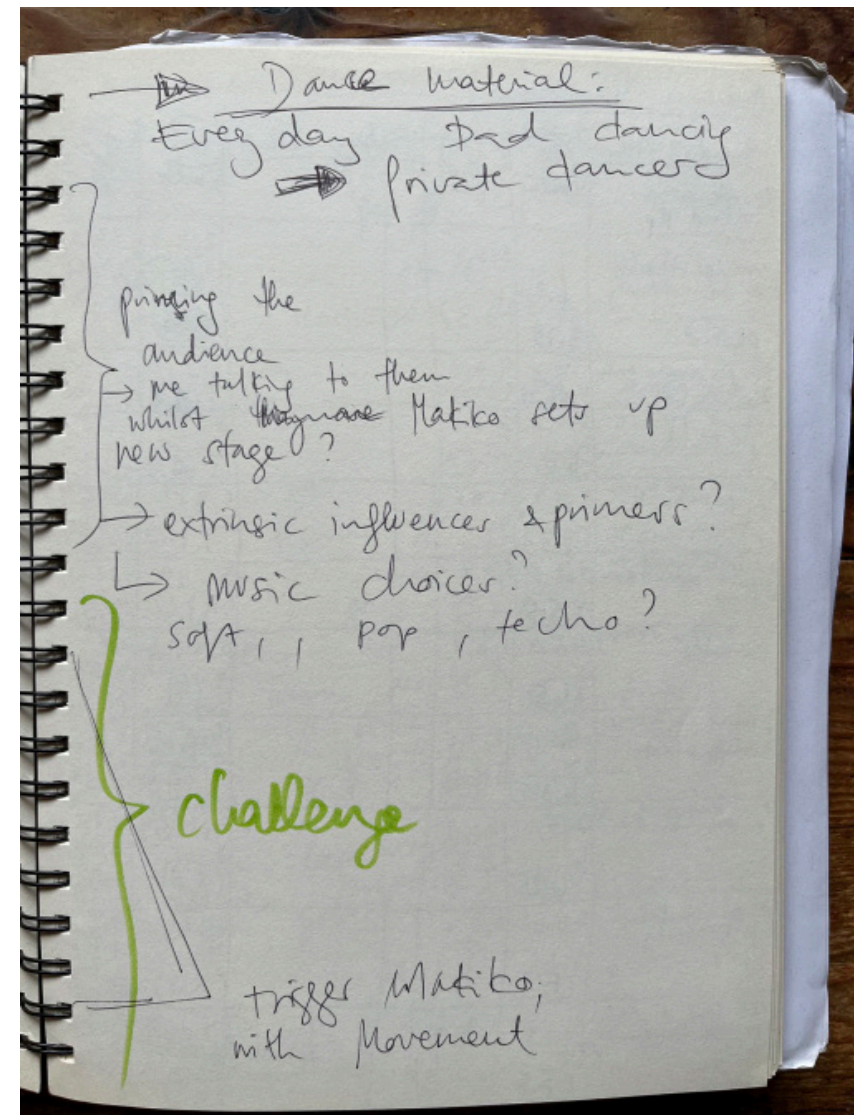 → Dance material:
Every day Dad dancing
→ private dancers
priming the
audience
→ me talking to them
whilst Makiko sets up
new stage?
→ extrinsic influences & primers?
↳ music choices?
soft, , pop, techo?
challenge
trigger Makiko,
with Movement